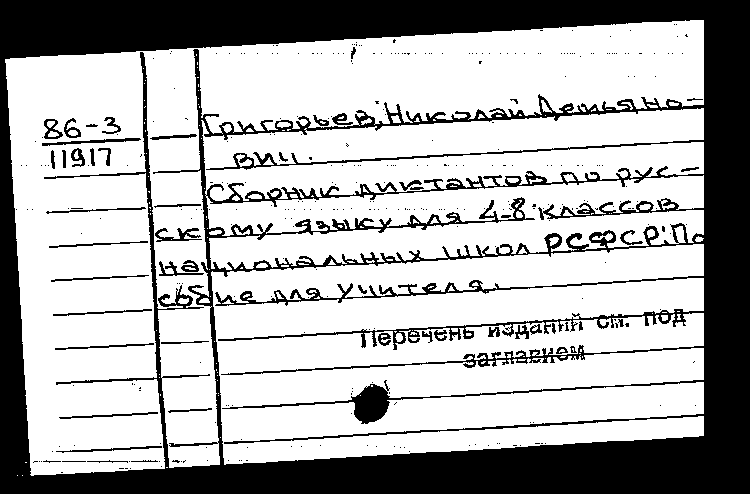 86-3
11917
Григорьев, Николай Демьяно-
вич.
Сборник диктантов по рус-
скому языку для 4-8 классов
национальных школ РСФСР: По
сбоие для учителя.
Перечень изданий см. под
заглавием